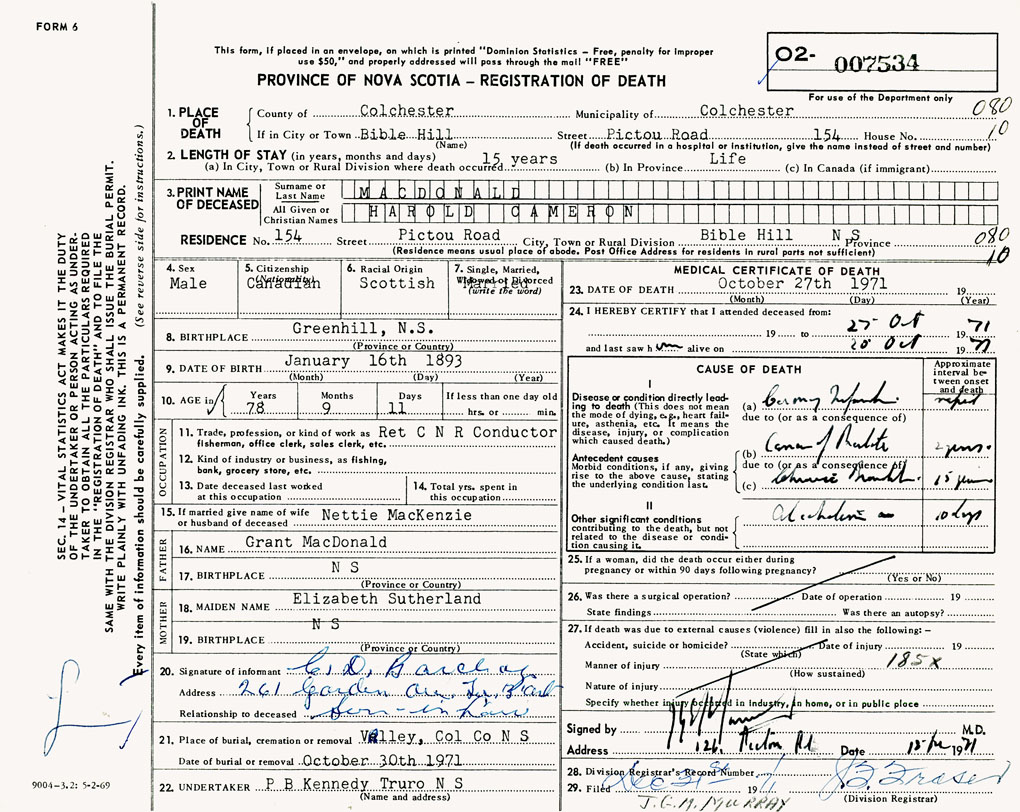 FORM 6
This form, if placed in an envelope, on which is printed "Dominion Statistics – Free, penalty for improper
use $50," and properly addressed will pass through the mail "FREE"
PROVINCE OF NOVA SCOTIA – REGISTRATION OF DEATH
O2- 007534
For use of the Department only
080
10
1. PLACE OF DEATH
County of Colchester Municipality of Colchester
If in City or Town Bible Hill Street Pictou Road 154 House No.
(Name) (If death occurred in a hospital or institution, give the name instead of street and number)
2. LENGTH OF STAY (in years, months and days)
(a) In City, Town or Rural Division where death occurred 15 years (b) In Province Life (c) In Canada (if immigrant)
3. PRINT NAME OF DECEASED
Surname or Last Name MACDONALD
All Given or Christian Names HAROLD CAMERON
RESIDENCE No. 154 Street Pictou Road City, Town or Rural Division Bible Hill N S Province
080
10
(Residence means usual place of abode. Post Office Address for residents in rural parts not sufficient)
4. Sex
Male
5. Citizenship (Nationality)
Canadian
6. Racial Origin
Scottish
7. Single, Married, Widowed or Divorced (write the word)
Married
8. BIRTHPLACE Greenhill, N.S.
(Province or Country)
9. DATE OF BIRTH January 16th 1893
(Month) (Day) (Year)
10. AGE in
Years 78
Months 9
Days 11
If less than one day old
hrs. or min.
OCCUPATION
11. Trade, profession, or kind of work as Ret C N R Conductor
fishermen, office clerk, sales clerk, etc.
12. Kind of industry or business, as fishing,
bank, grocery store, etc.
13. Date deceased last worked
at this occupation
14. Total yrs. spent in
this occupation
15. If married give name of wife
or husband of deceased Nettie MacKenzie
FATHER
16. NAME Grant MacDonald
17. BIRTHPLACE N S
(Province or Country)
MOTHER
18. MAIDEN NAME Elizabeth Sutherland
19. BIRTHPLACE N S
(Province or Country)
20. Signature of informant C. D. Barclay
Address 261
Relationship to deceased Son-in-law
21. Place of burial, cremation or removal Valley, Col Co N S
Date of burial or removal October 30th 1971
22. UNDERTAKER P B Kennedy Truro N S
(Name and address)
MEDICAL CERTIFICATE OF DEATH
23. DATE OF DEATH October 27th 1971 19
(Month) (Day) (Year)
24. I HEREBY CERTIFY that I attended deceased from:
Oct 19 71
19 to
and last saw him alive on Oct 19 71
CAUSE OF DEATH
Approximate interval between onset and death
I
Disease or condition directly leading to death (This does not
mean the mode of dying, e.g., heart failure, asthenia, etc. It means the
disease, injury, or complication
which caused death.)
(a)
due to (or as a consequence of)
(b)
Antecedent causes
Morbid conditions, if any, giving
rise to the above cause, stating
the underlying condition last.
due to (or as a consequence of)
(c)
II
Other significant conditions
contributing to the death, but not
related to the disease or condition causing it.
10 days
25. If a woman, did the death occur either during
pregnancy or within 90 days following pregnancy?
(Yes or No)
26. Was there a surgical operation? Date of operation 19
State findings Was there an autopsy?
27. If death was due to external causes (violence) fill in also the following: –
Accident, suicide or homicide? Date of injury 19
(State which)
185x
Manner of injury
(How sustained)
Nature of injury
Specify whether injury occurred in Industry, in home, or in public place
Signed by M.D.
Address 126 Pictou Rd Date 1971
28. Division Registrar's Record Number
29. Filed 19
(Division Registrar)
J. G. M. MURRAY
SEC. 14 – VITAL STATISTICS ACT MAKES IT THE DUTY
OF THE UNDERTAKER OR PERSON ACTING AS UNDER-
TAKER TO OBTAIN ALL THE PARTICULARS REQUIRED
IN THE "REGISTRATION OF DEATH" AND TO FILE THE
SAME WITH THE DIVISION REGISTRAR WHO SHALL ISSUE THE BURIAL PERMIT.
WRITE PLAINLY WITH UNFADING INK. THIS IS A PERMANENT RECORD.
Every item of information should be carefully supplied. (See reverse side for instructions.)
9004-3.2: 5-2-69